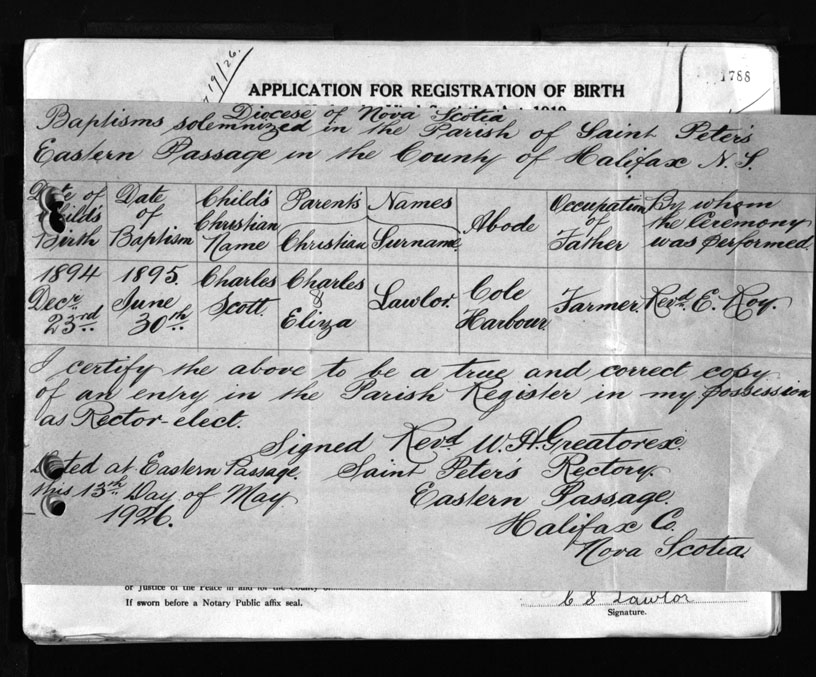 19/26.
1788
APPLICATION FOR REGISTRATION OF BIRTH
Diocese of Nova Scotia
Baptisms solemnized in the Parish of Saint Peter's
Eastern Passage in the County of Halifax N.S.
Date of Child's Birth
Date of Baptism
Child's Christian Name
Parent's Names
Christian
Surname.
Abode
Occupation of Father
By whom the Ceremony was performed.
1894 Decr. 23rd
1895. June 30th
Charles Scott.
Charles & Eliza
Lawlor.
Cole Harbour
Farmer.
Revd. E. Roy.
I certify the above to be a true and correct copy
of an entry in the Parish Register in my possission
as Rector-elect.
Signed Revd W.H.Greatorex.
Dated at Eastern Passage. Saint Peters Rectory.
this 13th Day of May Eastern Passage.
1926. Halifax Co.
Nova Scotia.
or Justice of the Peace in and for the County of
If sworn before a Notary Public affix seal.
C S Lawlor
Signature.